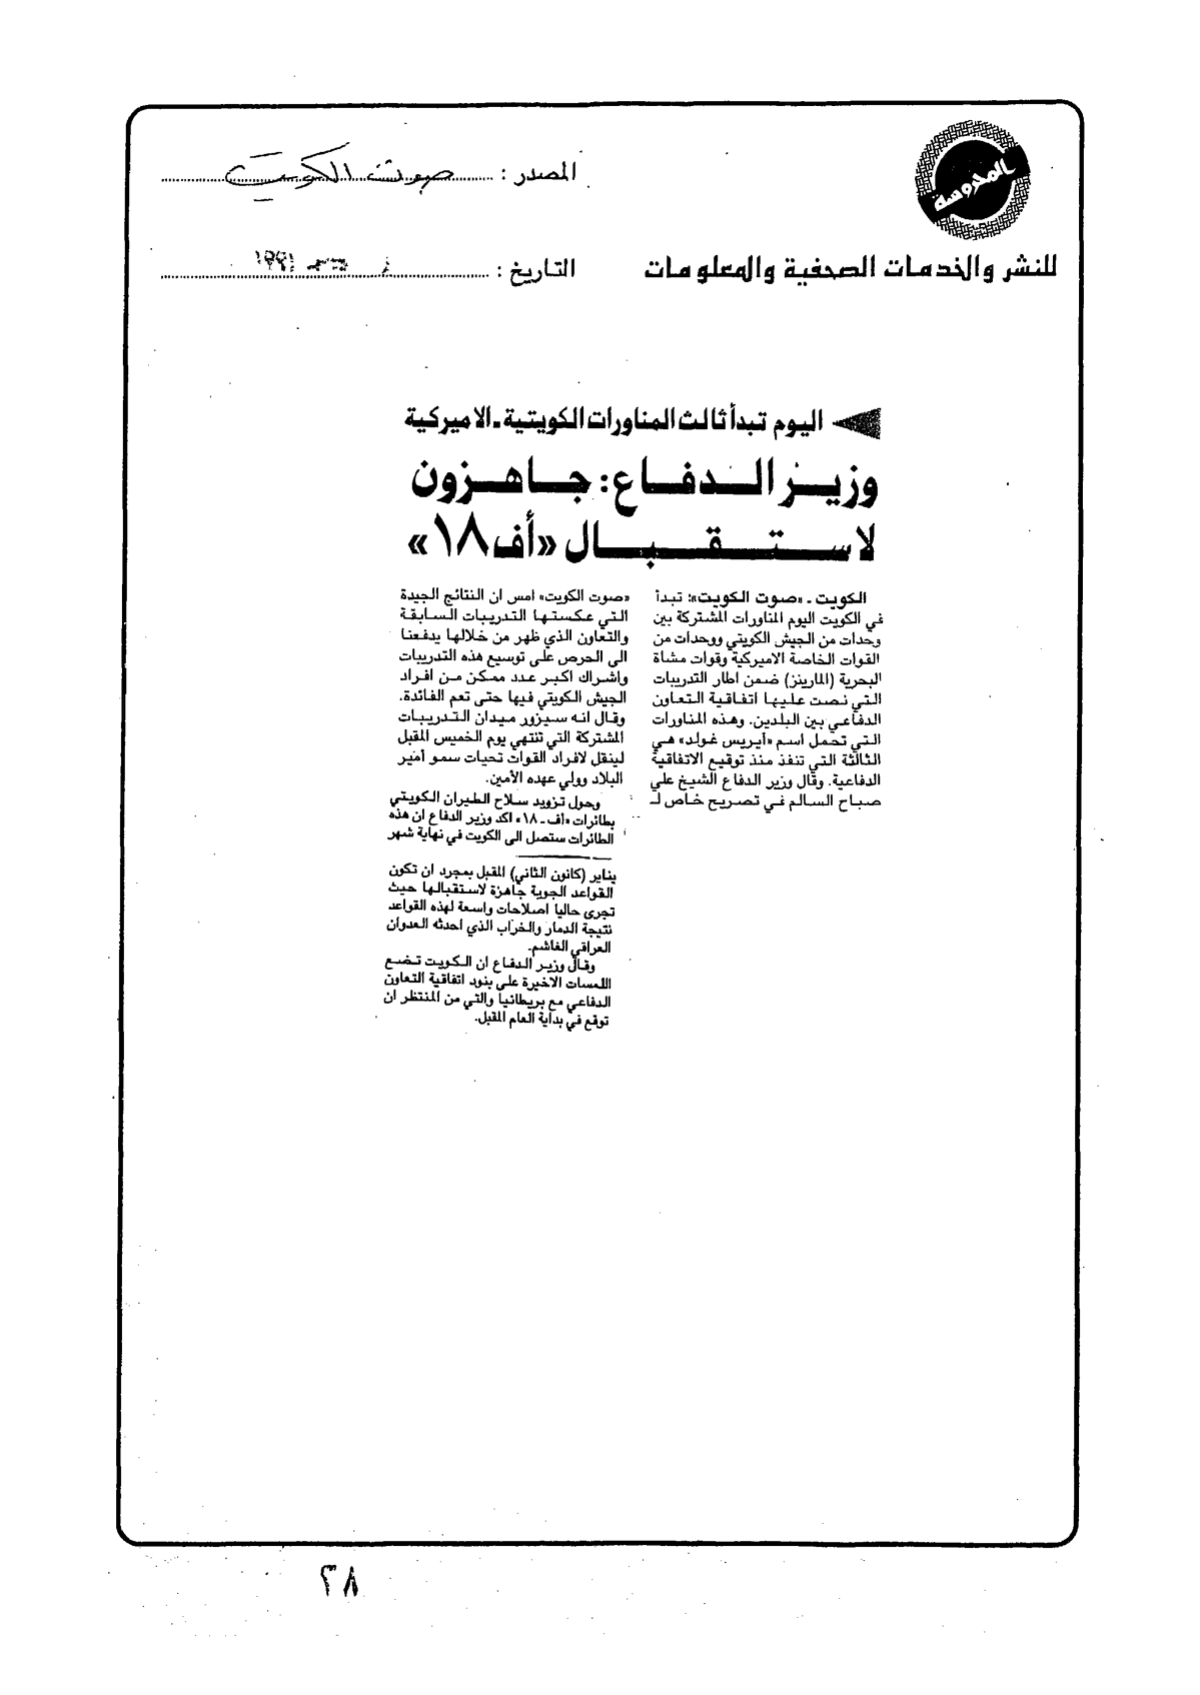 المحروسة
المصدر : صوت الكويت
للنشر والخدمات الصحفية والمعلومات
التاريخ : ديسمبر ١٩٩١
اليوم تبدأ ثالث المناورات الكويتية ـ الاميركية
وزير الدفاع: جاهزون
لاستقبال «أف ١٨»
الكويت ـ «صوت الكويت»: تبدأ
في الكويت اليوم المناورات المشتركة بين
وحدات من الجيش الكويتي ووحدات من
القوات الخاصة الاميركية وقوات مشاة
البحرية (المارينز) ضمن اطار التدريبات
التي نصت عليها اتفاقية التعاون
الدفاعي بين البلدين. وهذه المناورات
التي تحمل اسم «أيريس غولد» هي
الثالثة التي تنفذ منذ توقيع الاتفاقية
الدفاعية. وقال وزير الدفاع الشيخ علي
صباح السالم في تصريح خاص لـ
«صوت الكويت» امس ان النتائج الجيدة
التي عكستها التدريبات السابقة
والتعاون الذي ظهر من خلالها يدفعنا
الى الحرص على توسيع هذه التدريبات
واشراك اكبر عدد ممكن من افراد
الجيش الكويتي فيها حتى تعم الفائدة.
وقال انه سيزور ميدان التدريبات
المشتركة التي تنتهي يوم الخميس المقبل
لينقل لافراد القوات تحيات سمو أمير
البلاد وولي عهده الأمين.
وحول تزويد سلاح الطيران الكويتي
بطائرات «أف ـ ١٨» اكد وزير الدفاع ان هذه
الطائرات ستصل الى الكويت في نهاية شهر
يناير (كانون الثاني) المقبل بمجرد ان تكون
القواعد الجوية جاهزة لاستقبالها حيث
تجرى حاليا اصلاحات واسعة لهذه القواعد
نتيجة الدمار والخراب الذي احدثه العدوان
العراقي الغاشم.
وقال وزير الدفاع ان الكويت تضع
اللمسات الاخيرة على بنود اتفاقية التعاون
الدفاعي مع بريطانيا والتي من المنتظر ان
توقع في بداية العام المقبل.
٢٨